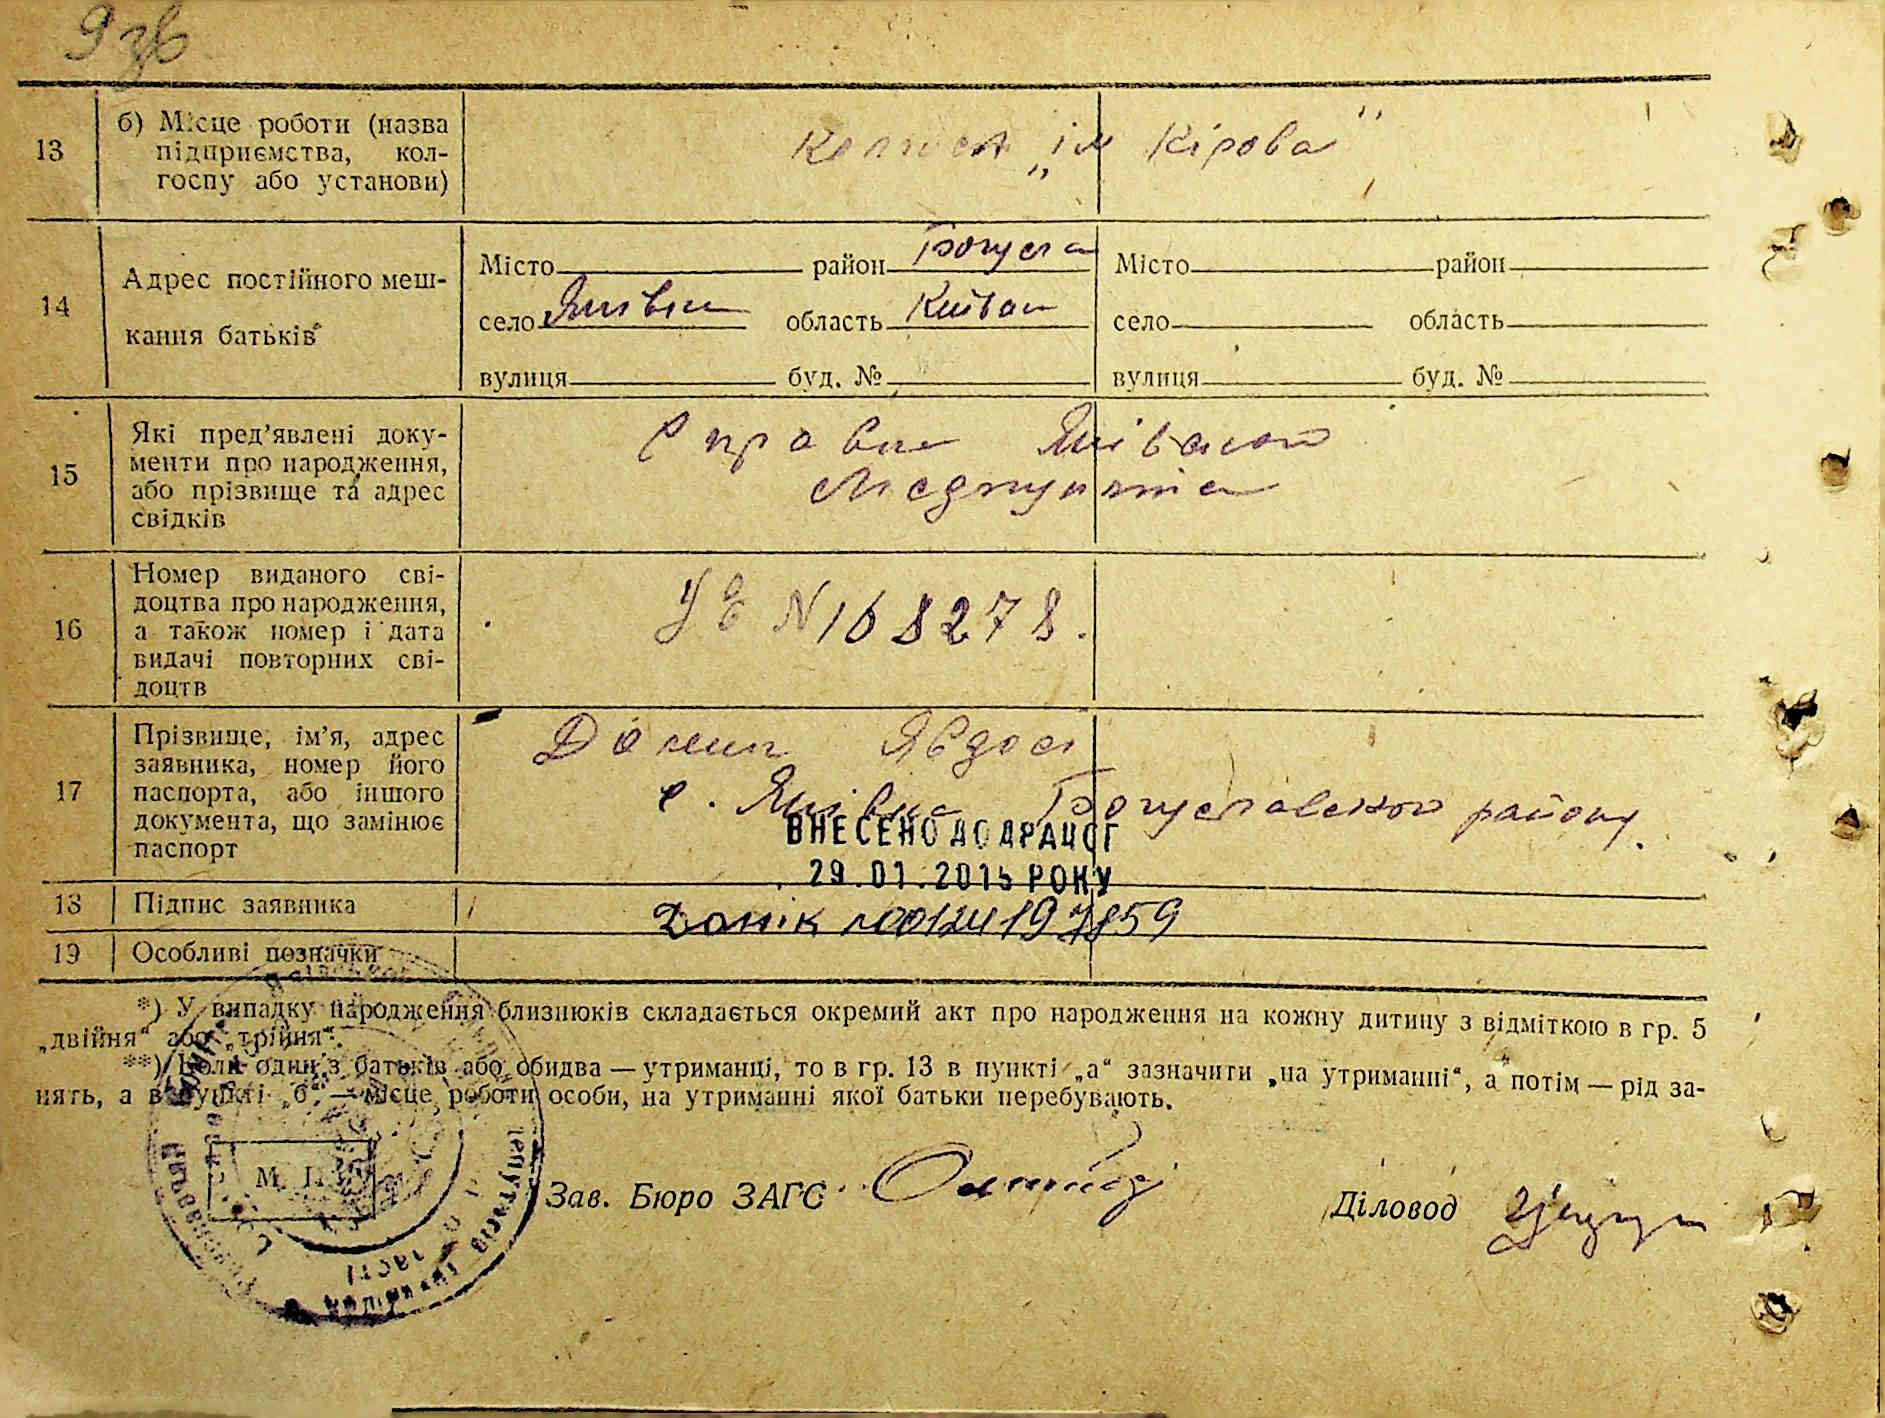 9 зв
13
б) Місце роботи (назва
підприємства, кол-
госпу або установи)
колгосп „ім Кірова"
14
Адрес постійного меш-
кання батьків
Місто район Богусла
село Яхівка область Київка
вулиця буд. №
Місто район
село область
вулиця буд. №
15
Які пред'явлені доку-
менти про народження,
або прізвище та адрес
свідків
Справка
Медпункта
16
Номер виданого сві-
доцтва про народження,
а також номер і дата
видачі повторних сві-
доцтв
N 168278.
17
Прізвище, ім'я, адрес
заявника, номер його
паспорта, або іншого
документа, що замінює
паспорт
Явдося
с. Богуславского району.
ВНЕСЕНО ДО ДРАЦСГ
29.01.2015 РОКУ
18
Підпис заявника
Донік 00124197859
19
Особливі позначки
*) У випадку народження близнюків складається окремий акт про народження на кожну дитину з відміткою в гр. 5
„двійня" або „трійня".
**) Коли один з батьків або обидва — утриманці, то в гр. 13 в пункті „а" зазначити „на утриманні", а потім — рід за-
нять, а в пункті „б" — місце роботи особи, на утриманні якої батьки перебувають.
М. П.
Зав. Бюро ЗАГС
Діловод